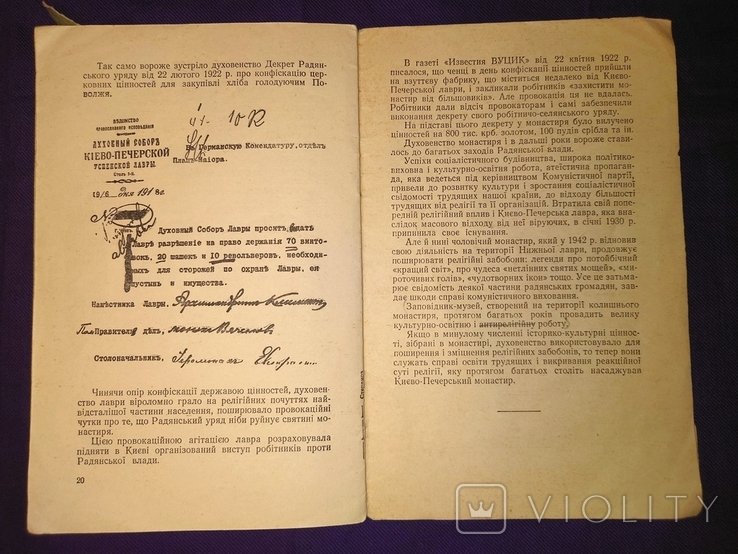 Так само вороже зустріло духовенство Декрет Радян-
ського уряду від 22 лютого 1922 р. про конфіскацію цер-
ковних цінностей для закупівлі хліба голодуючим По-
волжя.
ВѢДОМСТВО
ПРАВОСЛАВНАГО ИСПОВѢДАНІЯ
ДУХОВНЫЙ СОБОРЪ
КІЕВО-ПЕЧЕРСКОЙ
УСПЕНСКОЙ ЛАВРЫ.
На Германскую Комендатуру, отдѣлъ
Плацъ-маіора.
Духовный Соборъ Лавры проситъ выдать
Лаврѣ разрѣшеніе на право держанія 70 винто-
вокъ, 20 шашекъ и 10 револьверовъ, необходи-
мыхъ для сторожей по охранѣ Лавры, ея
пустынь и имущества.
Намѣстникъ Лавры, Архимандритъ
Правитель дѣлъ,
Столоначальникъ, Іеромонахъ
Чинячи опір конфіскації державою цінностей, духовен-
ство лаври віроломно грало на релігійних почуттях най-
відсталішої частини населення, поширювало провокаційні
чутки про те, що Радянський уряд ніби руйнує святині мо-
настиря.
Цією провокаційною агітацією лавра розраховувала
підняти в Києві організований виступ робітників проти
Радянської влади.
20
В газеті «Известия ВУЦИК» від 22 квітня 1922 р.
писалося, що ченці в день конфіскації цінностей прийшли
на взуттєву фабрику, що міститься недалеко від Києво-
Печерської лаври, і закликали робітників «захистити мона-
стир від більшовиків». Але провокація ця не вдалась.
Робітники дали відсіч провокаторам і самі забезпечили
виконання декрету свого робітничо-селянського уряду.
На підставі цього декрету у монастиря було вилучено
цінностей на 800 тис. крб. золотом, 100 пудів срібла та ін.
Духовенство монастиря і в дальші роки вороже ставило-
ся до багатьох заходів Радянської влади.
Успіхи соціалістичного будівництва, широка політико-
виховна і культурно-освітня робота, атеїстична пропаган-
да, яка ведеться під керівництвом Комуністичної партії,
привели до розвитку культури і зростання соціалістичної
свідомості трудящих нашої країни, до відходу більшості
трудящих від релігії та її організацій. Втратила свій по-
передній релігійний вплив і Києво-Печерська лавра, яка вна-
слідок масового відходу від неї віруючих, в січні 1930 р.
припинила своє існування.
Але й нині чоловічий монастир, який у 1942 р. відновив
свою діяльність на території Нижньої лаври, продовжує
поширювати релігійні забобони: легенди про потойбічний
«кращий світ», про чудеса «нетлінних святих мощей», «ми-
роточивих голів», «чудотворних ікон» тощо. Усе це затьма-
рює свідомість деякої частини радянських громадян, зав-
дає шкоди справі комуністичного виховання.
Заповідник-музей, створений на території колишнього
монастиря, протягом багатьох років провадить велику
культурно-освітню і антирелігійну роботу.
Якщо в минулому численні історико-культурні цінності,
зібрані в монастирі, духовенство використовувало для
поширення і зміцнення релігійних забобонів, то тепер вони
служать справі освіти трудящих і викривання реакційної
суті релігії, яку протягом багатьох століть насаджував
Києво-Печерський монастир.
VIOLITY